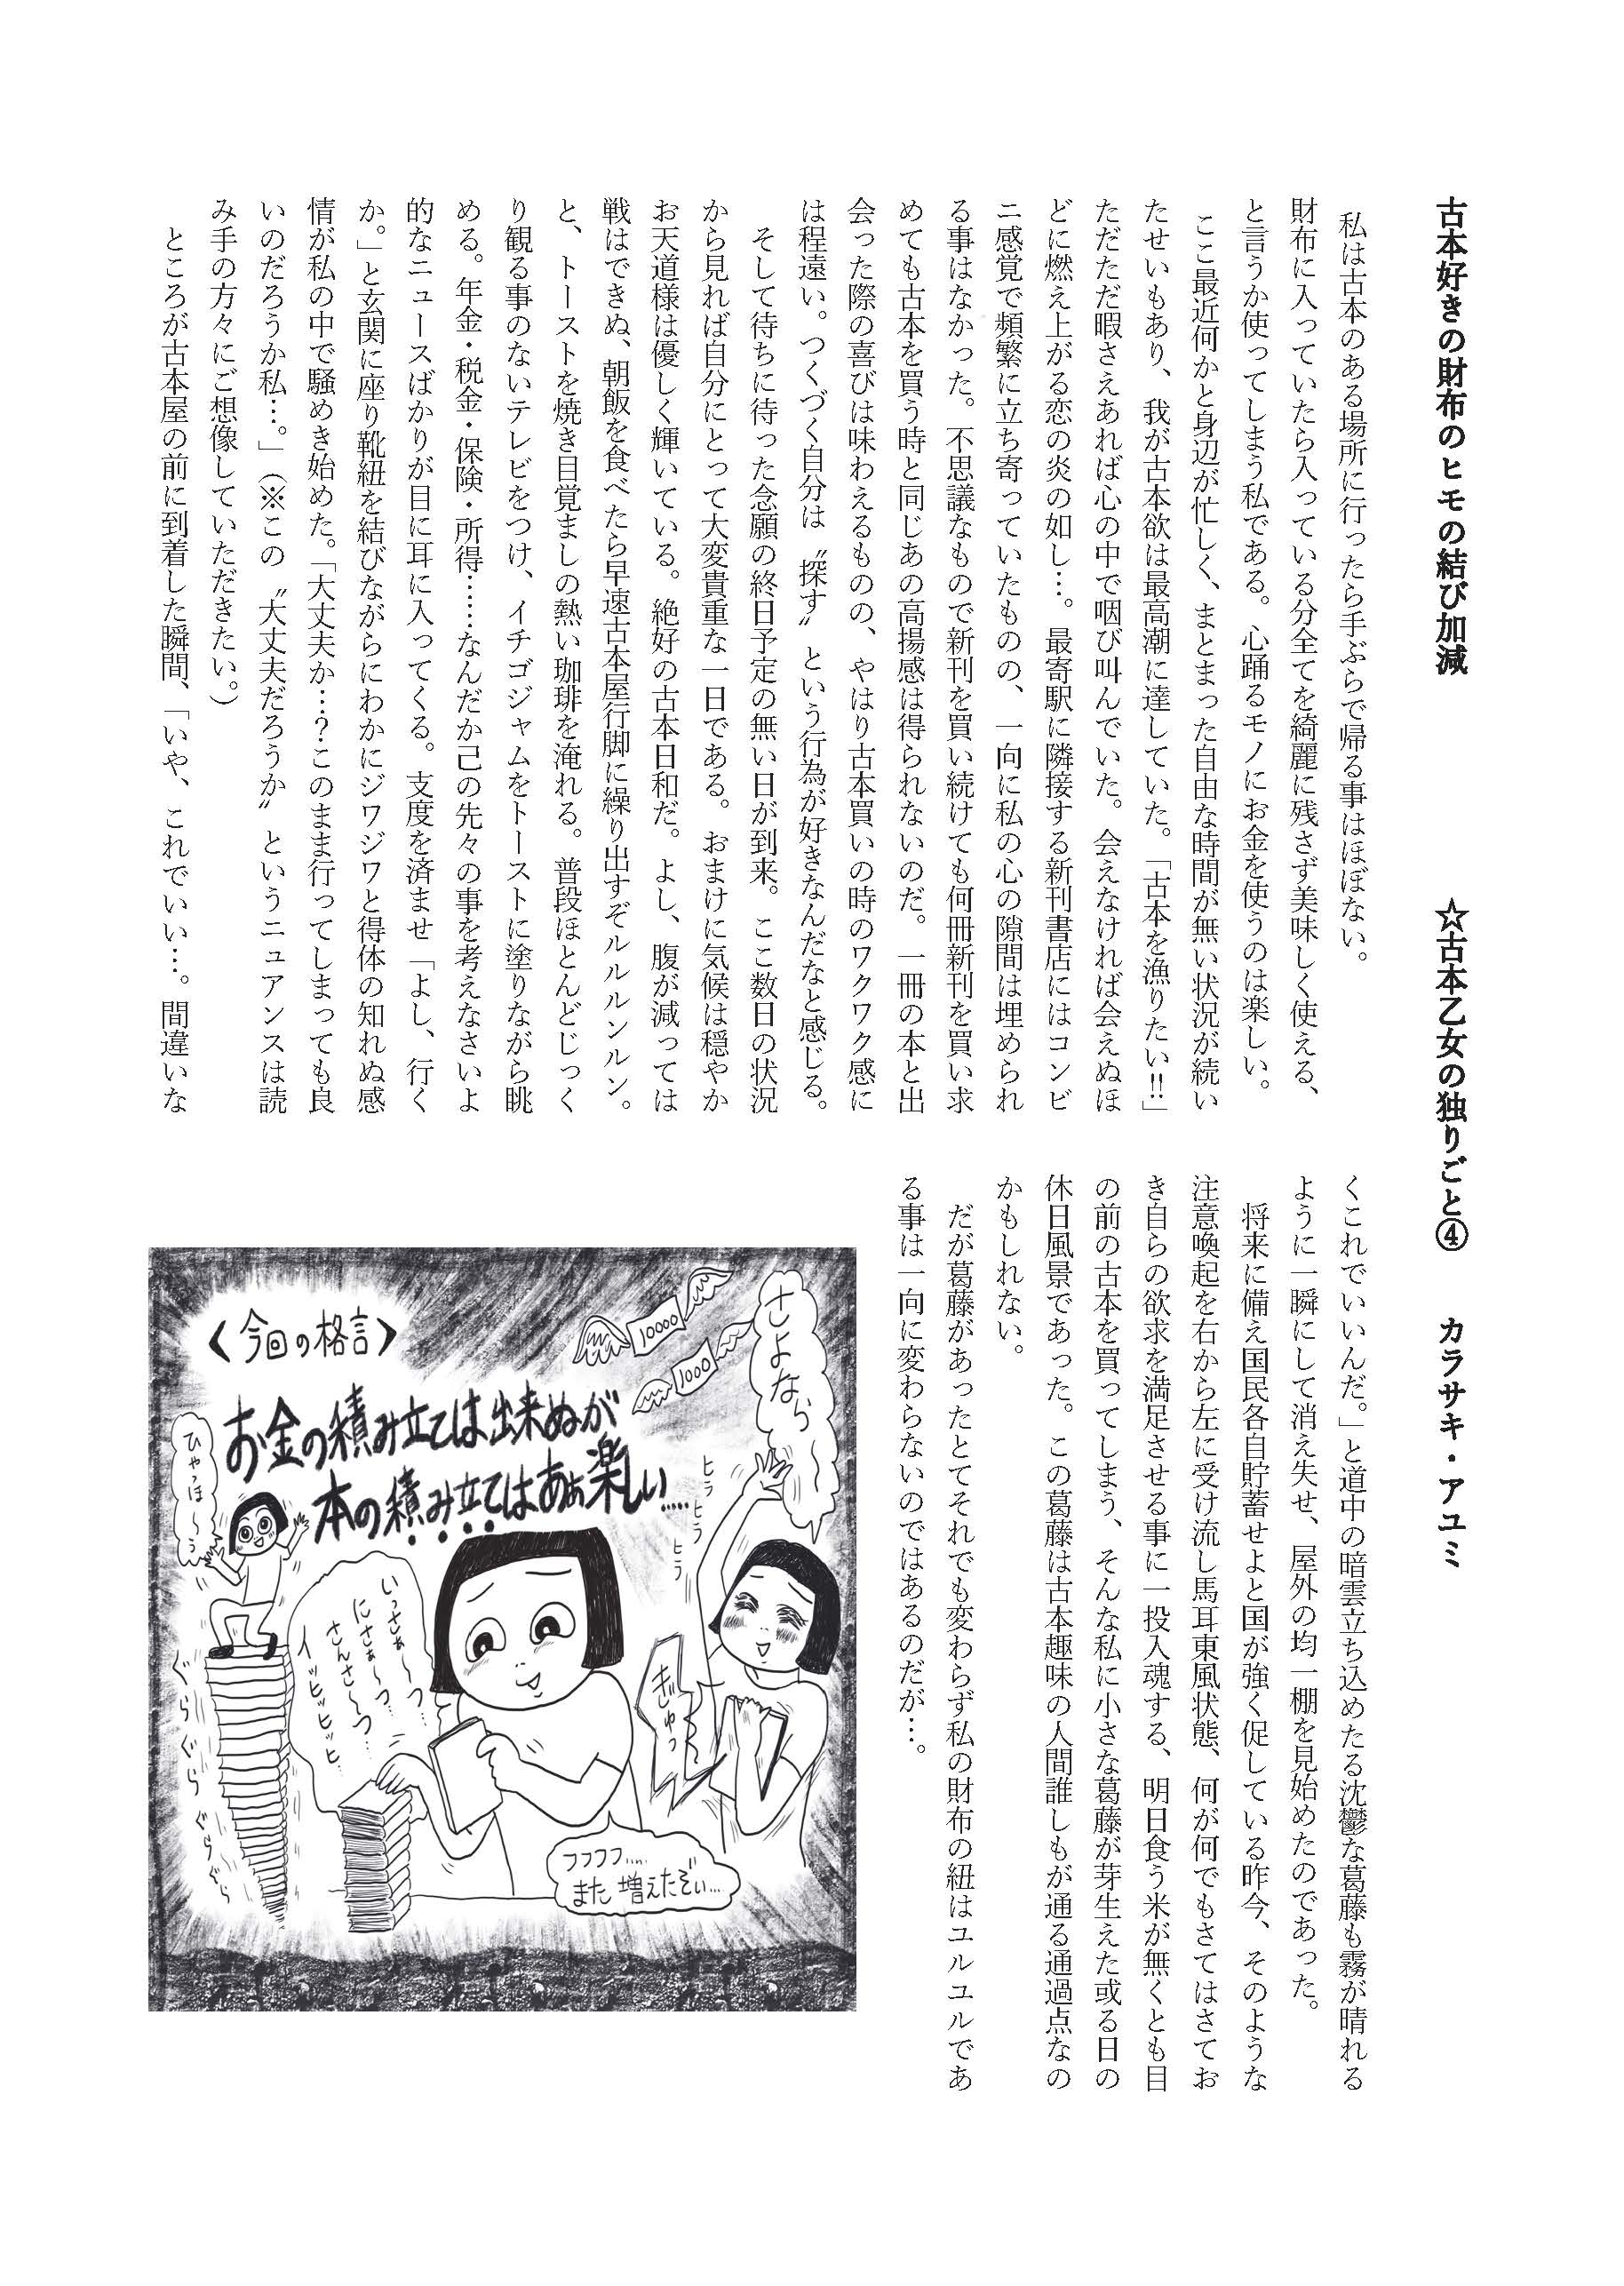 古本好きの財布のヒモの結び加減　☆古本乙女の独りごと④　カラサキ・アユミ
私は古本のある場所に行ったら手ぶらで帰る事はほぼない。
財布に入っていたら入っている分全てを綺麗に残さず美味しく使える、
と言うか使ってしまう私である。心踊るモノにお金を使うのは楽しい。
ここ最近何かと身辺が忙しく、まとまった自由な時間が無い状況が続い
たせいもあり、我が古本欲は最高潮に達していた。「古本を漁りたい!!」
ただただ暇さえあれば心の中で咽び叫んでいた。会えなければ会えぬほ
どに燃え上がる恋の炎の如し…。最寄駅に隣接する新刊書店にはコンビ
ニ感覚で頻繁に立ち寄っていたものの、一向に私の心の隙間は埋められ
る事はなかった。不思議なもので新刊を買い続けても何冊新刊を買い求
めても古本を買う時と同じあの高揚感は得られないのだ。一冊の本と出
会った際の喜びは味わえるものの、やはり古本買いの時のワクワク感に
は程遠い。つくづく自分は〝探す〟という行為が好きなんだなと感じる。
そして待ちに待った念願の終日予定の無い日が到来。ここ数日の状況
から見れば自分にとって大変貴重な一日である。おまけに気候は穏やか
お天道様は優しく輝いている。絶好の古本日和だ。よし、腹が減っては
戦はできぬ、朝飯を食べたら早速古本屋行脚に繰り出すぞルルルンルン。
と、トーストを焼き目覚ましの熱い珈琲を淹れる。普段ほとんどじっく
り観る事のないテレビをつけ、イチゴジャムをトーストに塗りながら眺
める。年金・税金・保険・所得……なんだか己の先々の事を考えなさいよ
的なニュースばかりが目に耳に入ってくる。支度を済ませ「よし、行く
か。」と玄関に座り靴紐を結びながらにわかにジワジワと得体の知れぬ感
情が私の中で騒めき始めた。「大丈夫か…？このまま行ってしまっても良
いのだろうか私…。」（※この〝大丈夫だろうか〟というニュアンスは読
み手の方々にご想像していただきたい。）
ところが古本屋の前に到着した瞬間、「いや、これでいい…。間違いな
くこれでいいんだ。」と道中の暗雲立ち込めたる沈鬱な葛藤も霧が晴れる
ように一瞬にして消え失せ、屋外の均一棚を見始めたのであった。
将来に備え国民各自貯蓄せよと国が強く促している昨今、そのような
注意喚起を右から左に受け流し馬耳東風状態、何が何でもさてはさてお
き自らの欲求を満足させる事に一投入魂する、明日食う米が無くとも目
の前の古本を買ってしまう、そんな私に小さな葛藤が芽生えた或る日の
休日風景であった。この葛藤は古本趣味の人間誰しもが通る通過点なの
かもしれない。
だが葛藤があったとてそれでも変わらず私の財布の紐はユルユルであ
る事は一向に変わらないのではあるのだが…。
さよなら〜
10000
1000
ヒラヒラ
ヒラ
〈今回の格言〉
お金の積み立ては出来ぬが
本の積み立てはあぁ楽しい……
ひゃっほ〜ぅ
ぎゅっ
いっさぁ〜つ…
にさぁ〜つ…
さんさ〜つ…
イッヒッヒッヒ…
フフフフ……
また増えたぞい…
ぐらぐらぐらぐら